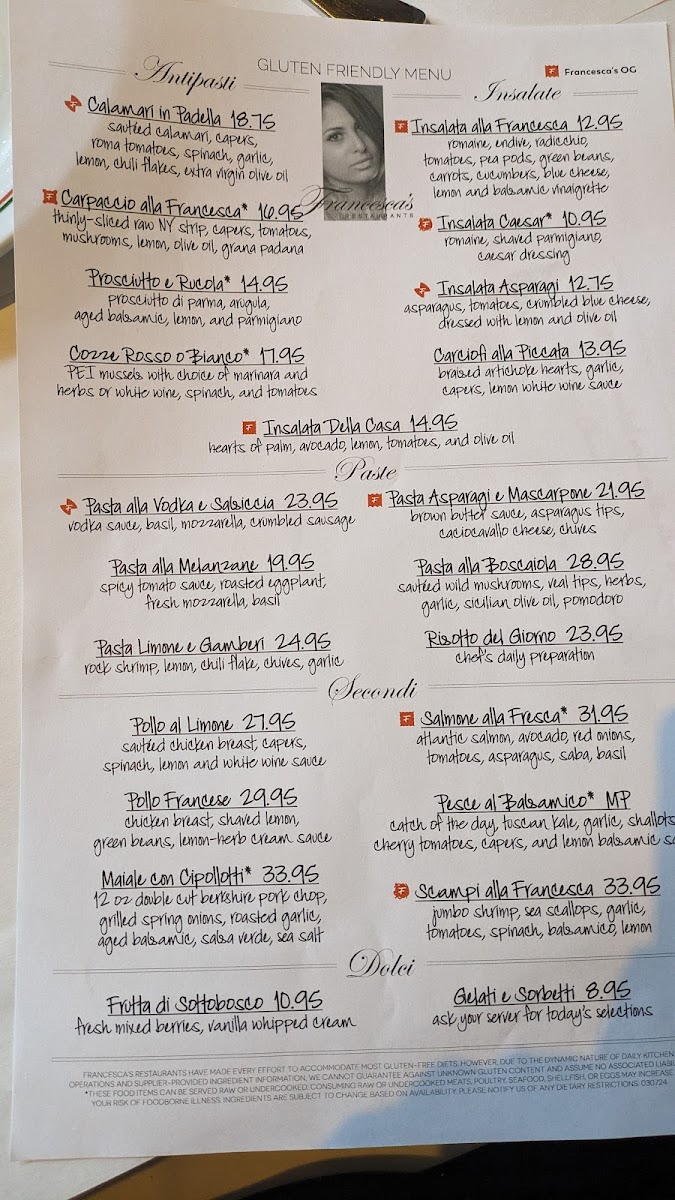 GLUTEN FRIENDLY MENU
Francesca's OG
Francesca's
RESTAURANTS
Antipasti
Calamari in Padella 18.75
sautéed calamari, capers,
roma tomatoes, spinach, garlic,
lemon, chili flakes, extra virgin olive oil
Carpaccio alla Francesca* 16.95
thinly-sliced raw NY strip, capers, tomatoes,
mushrooms, lemon, olive oil, grana padana
Prosciutto e Rucola* 14.95
prosciutto di parma, arugula,
aged balsamic, lemon, and parmigiano
Cozze Rosso o Bianco* 17.95
PEI mussels with choice of marinara and
herbs or white wine, spinach, and tomatoes
Insalate
Insalata alla Francesca 12.95
romaine, endive, radicchio,
tomatoes, pea pods, green beans,
carrots, cucumbers, blue cheese,
lemon and balsamic vinaigrette
Insalata Caesar* 10.95
romaine, shaved parmigiano,
caesar dressing
Insalata Asparagi 12.75
asparagus, tomatoes, crumbled blue cheese,
dressed with lemon and olive oil
Carciofi alla Piccata 13.95
braised artichoke hearts, garlic,
capers, lemon white wine sauce
Insalata Della Casa 14.95
hearts of palm, avocado, lemon, tomatoes, and olive oil
Paste
Pasta alla Vodka e Salsiccia 23.95
vodka sauce, basil, mozzarella, crumbled sausage
Pasta alla Melanzane 19.95
spicy tomato sauce, roasted eggplant,
fresh mozzarella, basil
Pasta Limone e Gamberi 24.95
rock shrimp, lemon, chili flake, chives, garlic
Pasta Asparagi e Mascarpone 21.95
brown butter sauce, asparagus tips,
caciocavallo cheese, chives
Pasta alla Boscaiola 28.95
sautéed wild mushrooms, veal tips, herbs,
garlic, sicilian olive oil, pomodoro
Risotto del Giorno 23.95
chef's daily preparation
Secondi
Pollo al Limone 27.95
sautéed chicken breast, capers,
spinach, lemon and white wine sauce
Pollo Francese 29.95
chicken breast, shaved lemon,
green beans, lemon-herb cream sauce
Maiale con Cipollotti* 33.95
12 oz double cut berkshire pork chop,
grilled spring onions, roasted garlic,
aged balsamic, salsa verde, sea salt
Salmone alla Fresca* 31.95
atlantic salmon, avocado, red onions,
tomatoes, asparagus, saba, basil
Pesce al Balsamico* MP
catch of the day, tuscan kale, garlic, shallots
cherry tomatoes, capers, and lemon balsamic
Scampi alla Francesca 33.95
jumbo shrimp, sea scallops, garlic,
tomatoes, spinach, balsamico, lemon
Dolci
Frutta di Sottobosco 10.95
fresh mixed berries, vanilla whipped cream
Gelati e Sorbetti 8.95
ask your server for today's selections
FRANCESCA'S RESTAURANTS HAVE MADE EVERY EFFORT TO ACCOMMODATE MOST GLUTEN-FREE DIETS. HOWEVER, DUE TO THE DYNAMIC NATURE OF DAILY KITCHEN
OPERATIONS AND SUPPLIER-PROVIDED INGREDIENT INFORMATION, WE CANNOT GUARANTEE AGAINST UNKNOWN GLUTEN CONTENT AND ASSUME NO ASSOCIATED
*THESE FOOD ITEMS CAN BE SERVED RAW OR UNDERCOOKED. CONSUMING RAW OR UNDERCOOKED MEATS, POULTRY, SEAFOOD, SHELLFISH, OR EGGS MAY INCREASE
YOUR RISK OF FOODBORNE ILLNESS. INGREDIENTS ARE SUBJECT TO CHANGE BASED ON AVAILABILITY. PLEASE NOTIFY US OF ANY DIETARY RESTRICTIONS. 030724